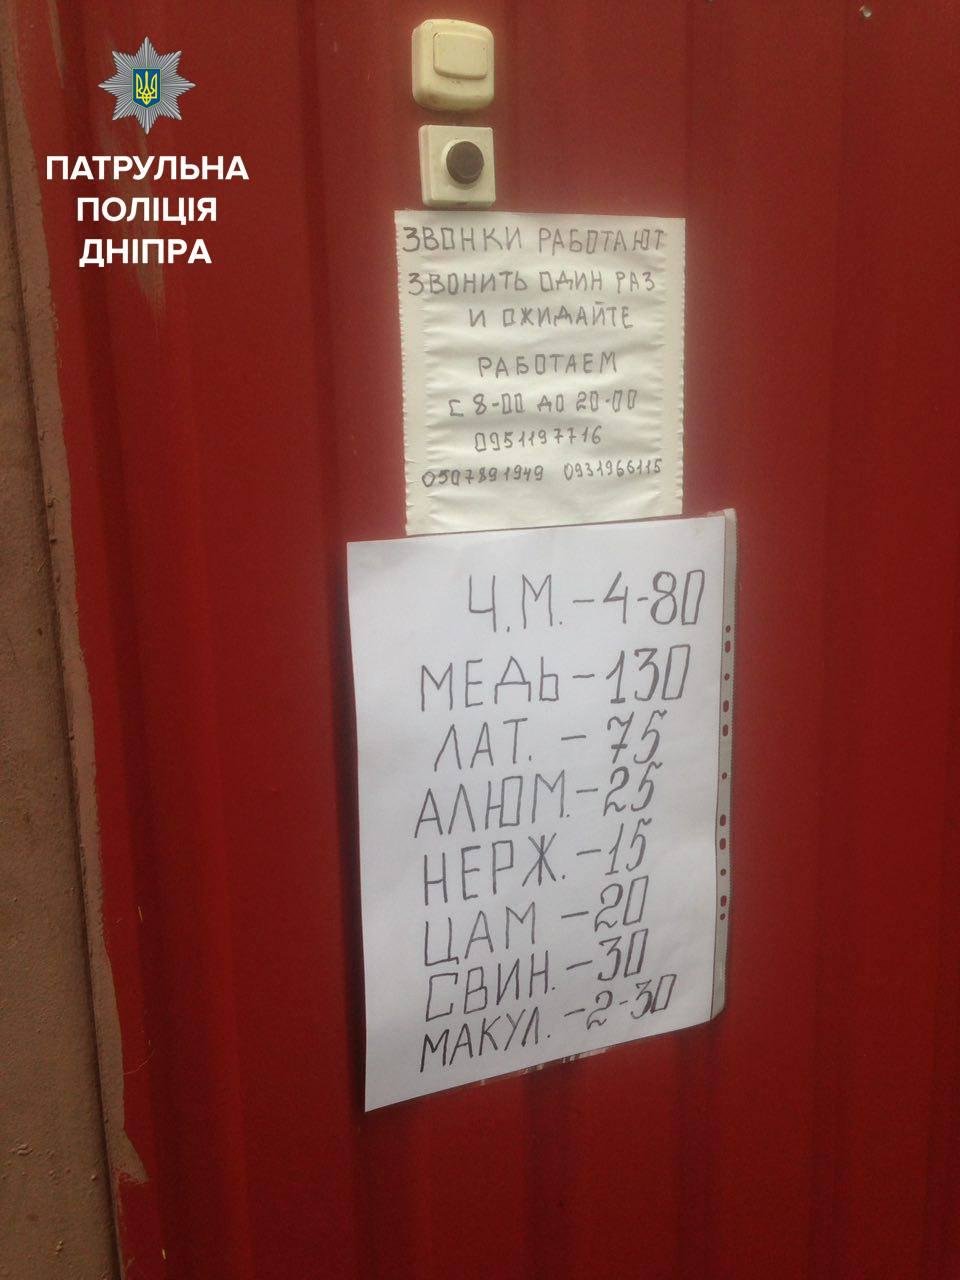 ПАТРУЛЬНА
ПОЛІЦІЯ
ДНІПРА
ЗВОНКИ РАБОТАЮТ
ЗВОНИТЬ ОДИН РАЗ
И ОЖИДАЙТЕ
РАБОТАЕМ
С 8-00 ДО 20-00
0951197716
0507891949 0931966115
Ч.М. - 4-80
МЕДЬ - 130
ЛАТ. - 75
АЛЮМ. - 25
НЕРЖ. - 15
ЦАМ - 20
СВИН. - 30
МАКУЛ. - 2-30